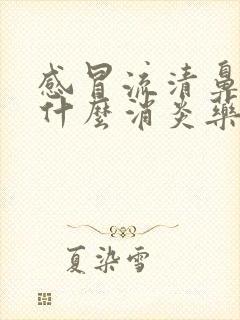 感冒流清鼻
什麼消炎藥
夏染雪